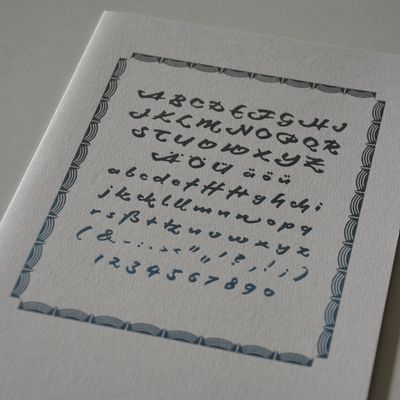 A B C D E F G H I
J K L M N O P Q R
S T U V W X Y Z
Ä Ö Ü ä ö ü
a b c d e f ff ft g h ch i
j k ck l ll m n o p q
r s ß t tz u v w x y z
( & - . : > < " " ! ? , ! ; )
1 2 3 4 5 6 7 8 9 0